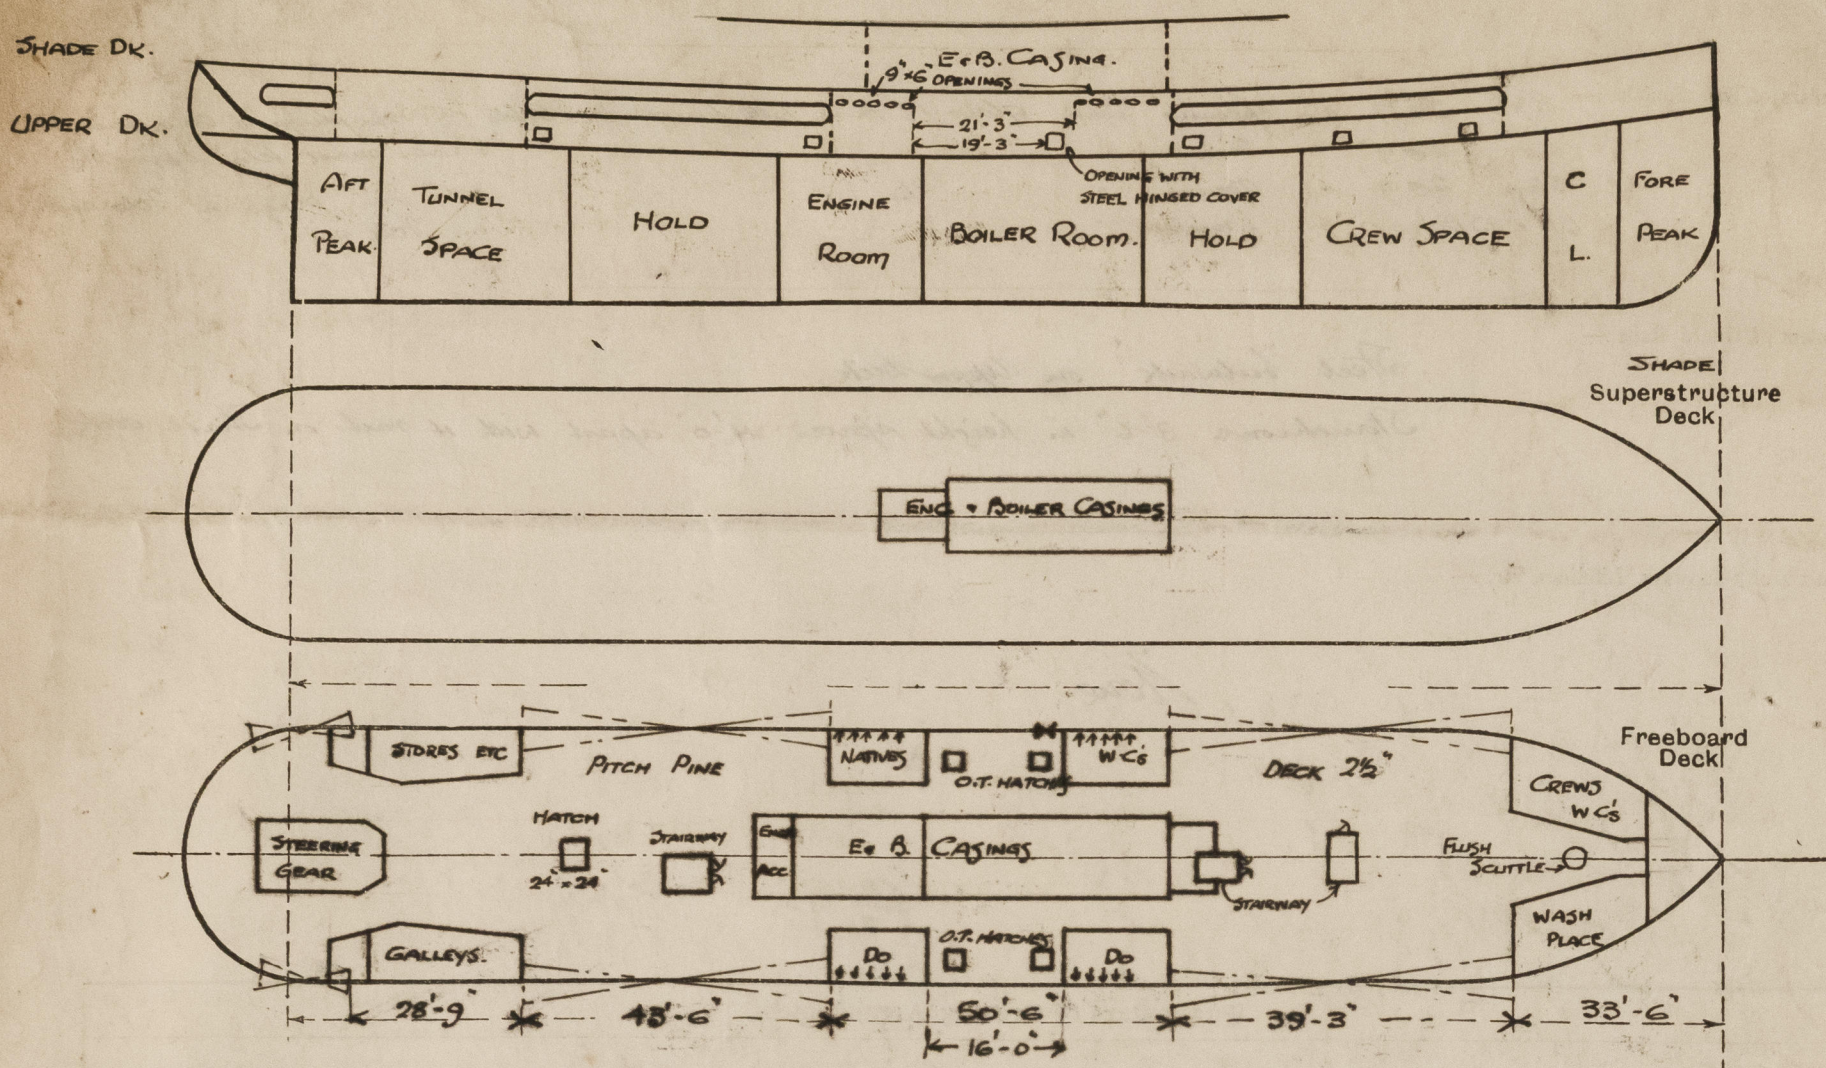 SHADE DK.
UPPER DK.
E & B. CASING.
9" x 6" OPENINGS
21'-3"
19'-3"
OPENING WITH
STEEL HINGED COVER
AFT
PEAK
TUNNEL
SPACE
HOLD
ENGINE
ROOM
BOILER ROOM.
HOLD
CREW SPACE
C
L.
FORE
PEAK
SHADE
Superstructure
Deck
ENG & BOILER CASINGS
Freeboard
Deck
STORES ETC
PITCH PINE
NATIVES
O.T. HATCHES
W C's
DECK 2½"
CREWS
W C's
STEERING
GEAR
HATCH
24" x 24"
STAIRWAY
ENG
ACC
E & B. CASINGS
STAIRWAY
FLUSH
SCUTTLE
WASH
PLACE
GALLEYS.
DO
O.T. HATCHES
DO
28'-9"
43'-6"
50'-6"
39'-3"
33'-6"
16'-0"